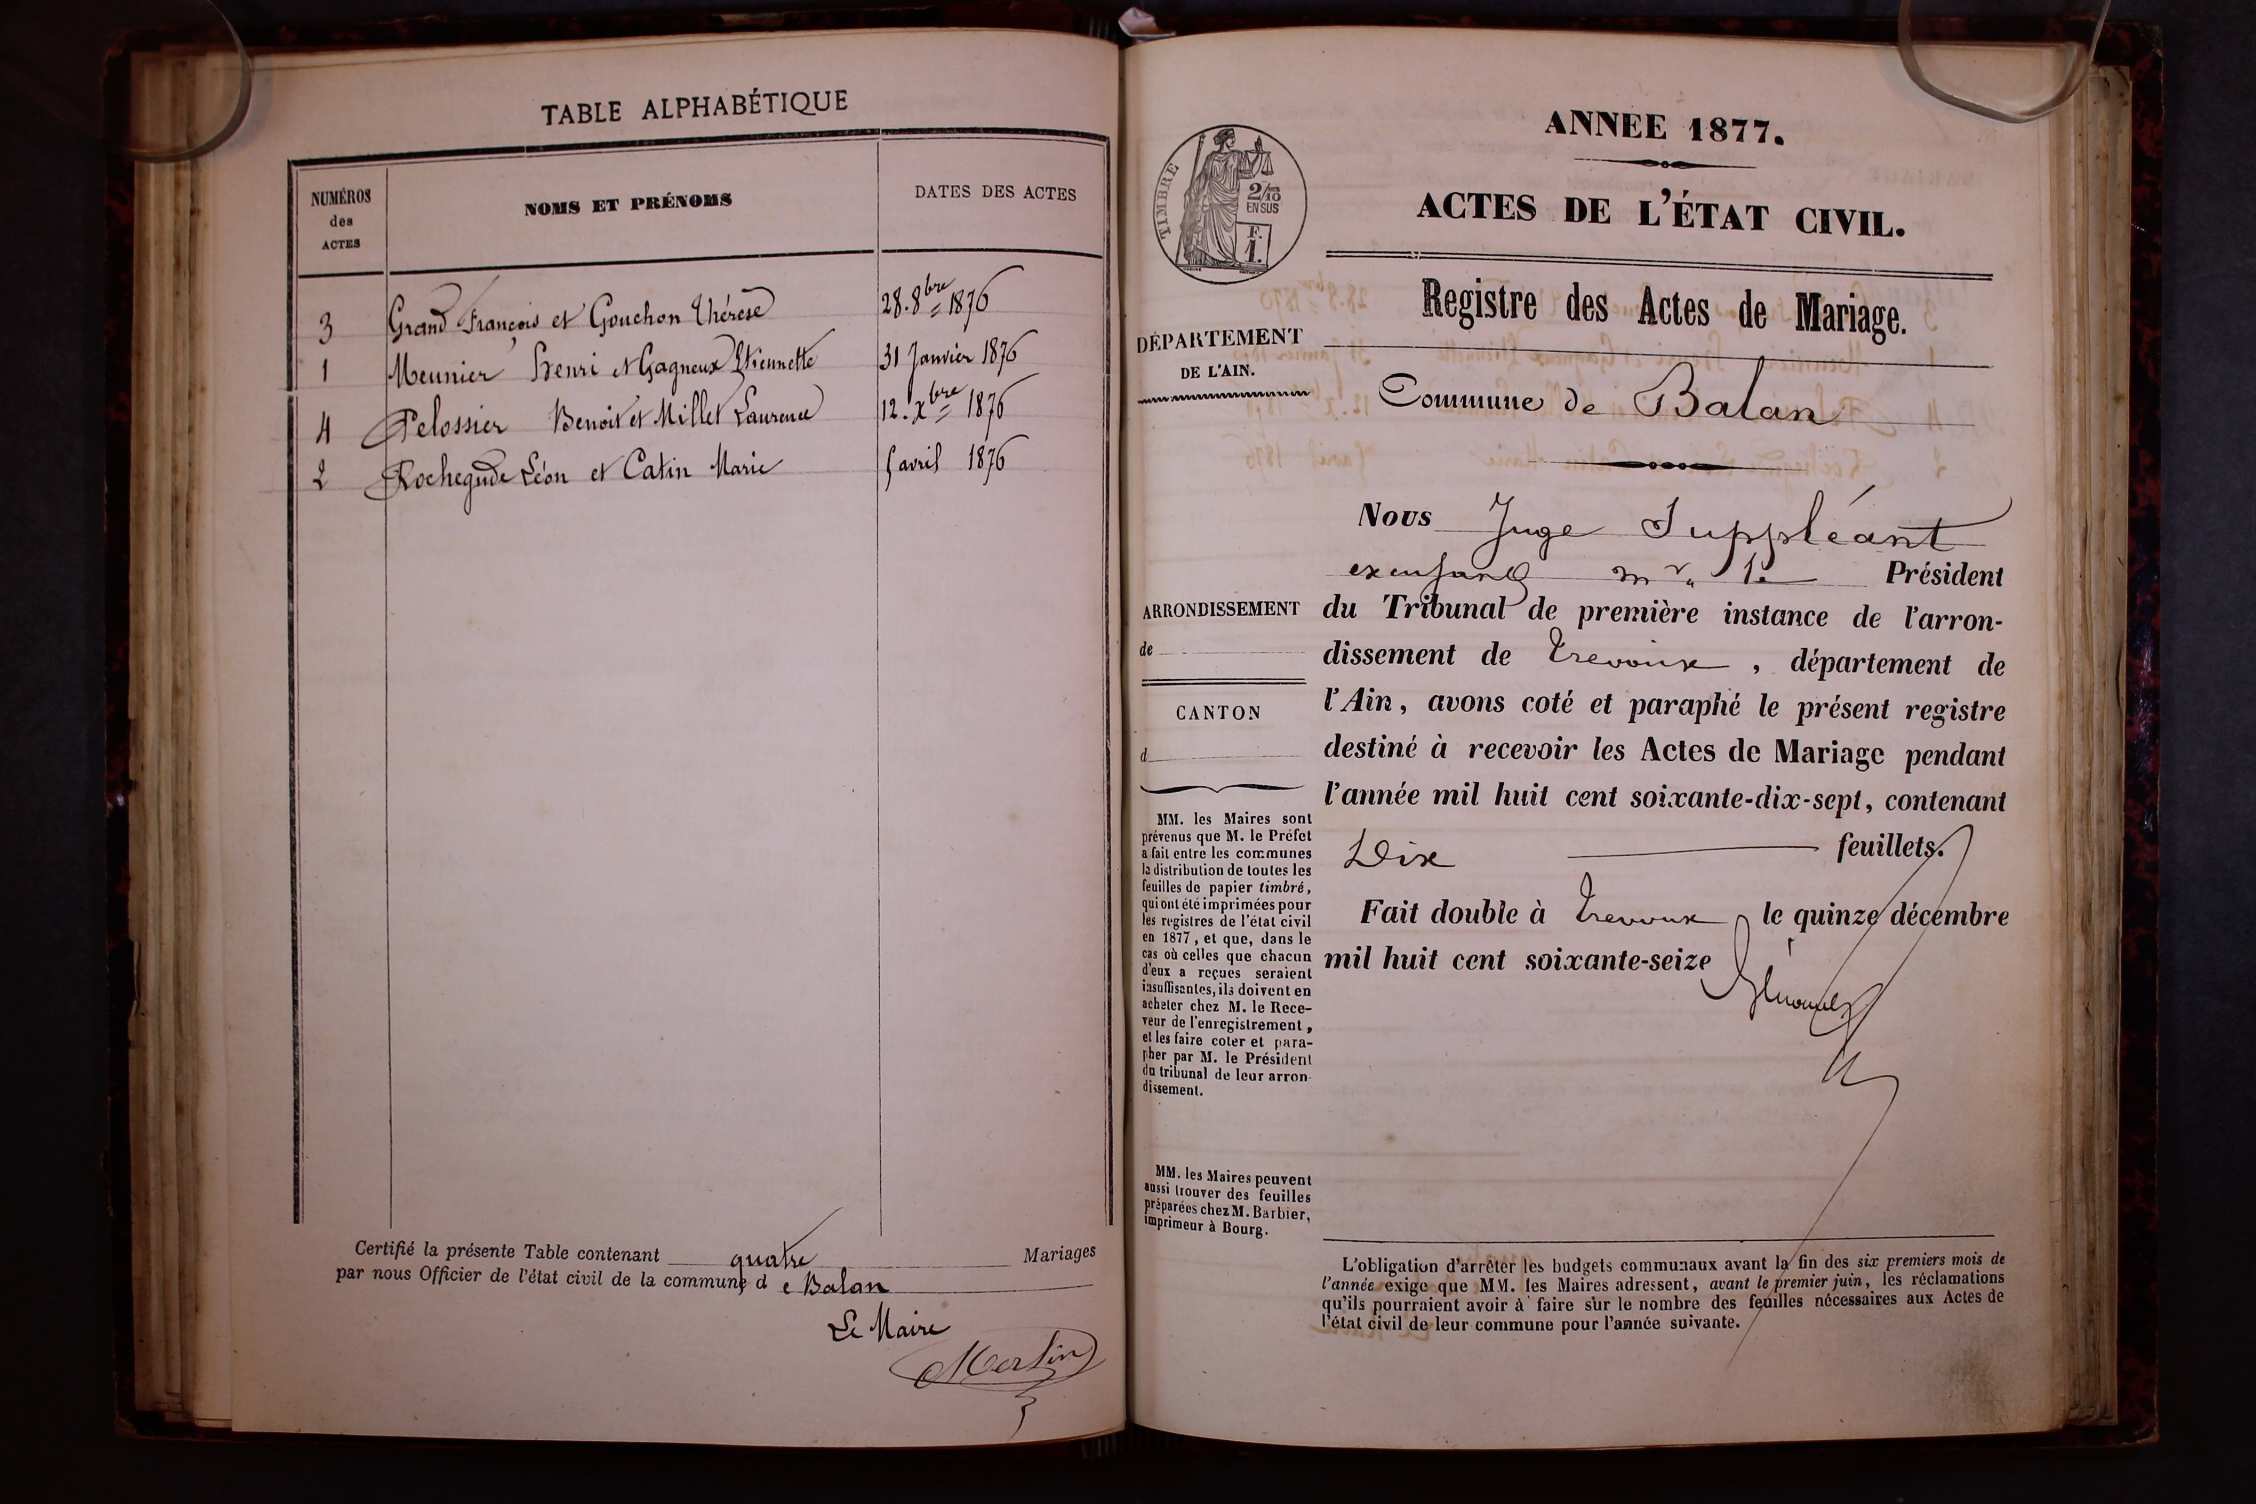 TABLE ALPHABÉTIQUE
NUMÉROS
des
ACTES
NOMS ET PRÉNOMS
DATES DES ACTES
3 Grand François et Gouchon Thérèse 28.8bre 1876
1 Meunier Henri et Gagneux Etiennette 31 Janvier 1876
4 Pelossier Benoit et Millet Laurence 12.Xbre 1876
2 Rochegude Léon et Catin Marie 5 avril 1876
Certifié la présente Table contenant quatre Mariages
par nous Officier de l'état civil de la commune de Balan
Le Maire
Merlin
ANNÉE 1877.
ACTES DE L'ÉTAT CIVIL.
TIMBRE
2/10
EN SUS
F.
1.
Registre des Actes de Mariage.
DÉPARTEMENT
DE L'AIN.
Commune de Balan
Nous Juge Suppléant
Président
ARRONDISSEMENT
de
CANTON
d
du Tribunal de première instance de l'arron-
dissement de Trevoux, département de
l'Ain, avons coté et paraphé le présent registre
destiné à recevoir les Actes de Mariage pendant
l'année mil huit cent soixante-dix-sept, contenant
Dix feuillets.
Fait double à Trevoux le quinze décembre
mil huit cent soixante-seize
MM. les Maires sont
prévenus que M. le Préfet
a fait entre les communes
la distribution de toutes les
feuilles de papier timbré,
qui ont été imprimées pour
les registres de l'état civil
en 1877, et que, dans le
cas où celles que chacun
d'eux a reçues seraient
insuffisantes, ils doivent en
acheter chez M. le Rece-
veur de l'enregistrement,
et les faire coter et para-
pher par M. le Président
du tribunal de leur arron-
dissement.
MM. les Maires peuvent
aussi trouver des feuilles
préparées chez M. Barbier,
imprimeur à Bourg.
L'obligation d'arrêter les budgets communaux avant la fin des six premiers mois de
l'année exige que MM. les Maires adressent, avant le premier juin, les réclamations
qu'ils pourraient avoir à faire sur le nombre des feuilles nécessaires aux Actes de
l'état civil de leur commune pour l'année suivante.